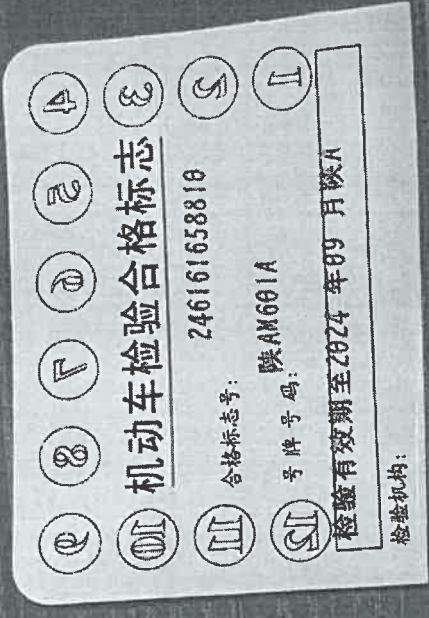 9 8 7 6 5 4
10 机动车检验合格标志 3
11 合格标志号: 246161658810 2
12 号牌号码: 陕AM601A 1
检验有效期至2024 年09 月陕A
检验机构: